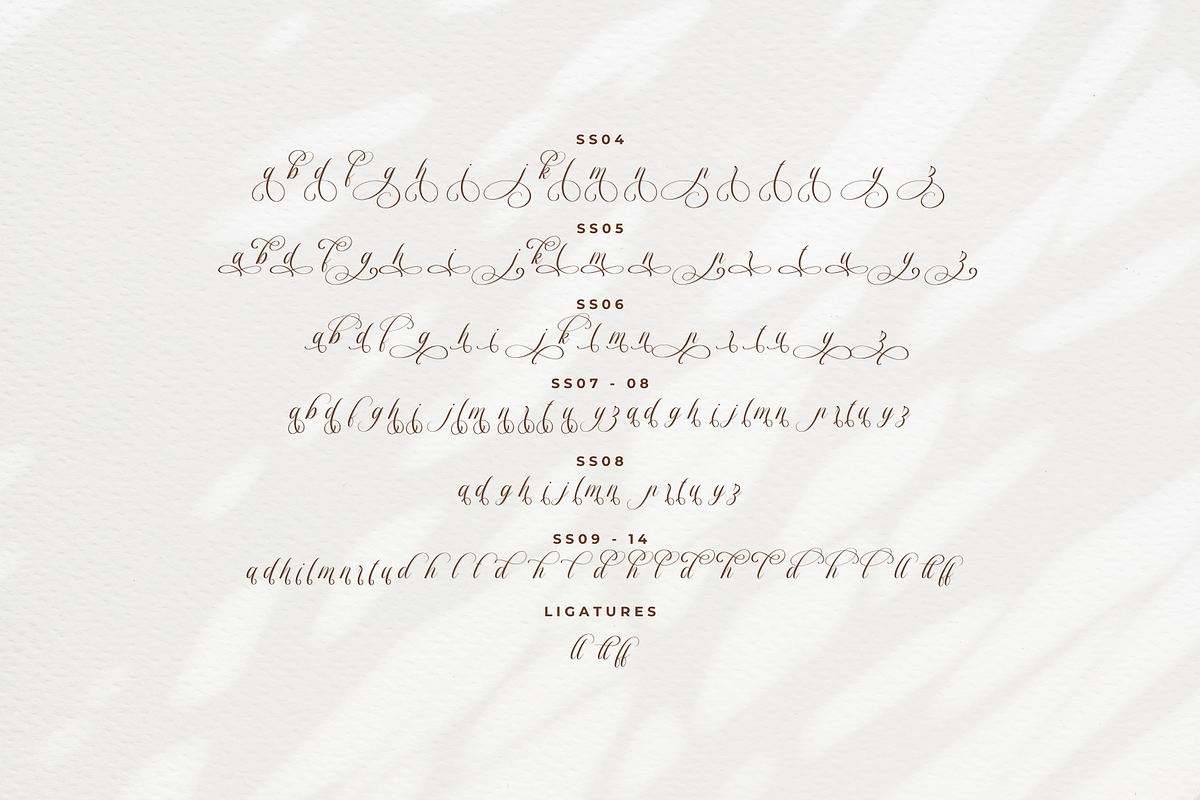 SS04
a b d f g h i j k l m n p r t u y z
SS05
a b d f g h i j k l m n p r t u y z
SS06
a b d f g h i j k l m n p r t u y z
SS07 - 08
a b d f g h i j l m n r t u y z a d g h i j l m n p r l t u y z
SS08
a d g h i j l m n p r t u y z
SS09 - 14
a d h i l m n r t u d h l l d h l d h l d h l d h l ll tt ff
LIGATURES
ll tt ff